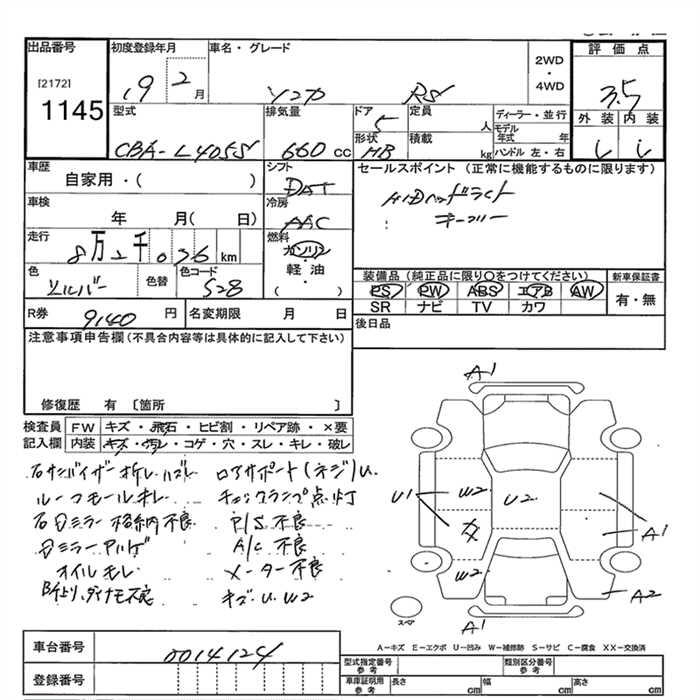 出品番号
[2172]
1145
初度登録年月
19 2月
車名・グレード
ソニカ RS
2WD
・
4WD
評価点
3.5
型式
CBA-L405S
排気量
660 cc
ドア
5
定員
人
形状
HB
積載
kg
ディーラー・並行
モデル年式 年
ハンドル 左・右
外装 内装
車歴
自家用・( )
シフト
DAT
セールスポイント(正常に機能するものに限ります)
HIDヘッドライト
キーフリー
車検
年 月( 日)
冷房
AAC
走行
8万2千036km
燃料
ガソリン
・
軽油
・
( )
色
シルバー
色替
色コード
S28
装備品(純正品に限り○をつけてください)
PS PW ABS エアB AW
SR ナビ TV カワ
新車保証書
有・無
R券
9140 円
名変期限 月 日
後日品
注意事項申告欄(不具合内容等は具体的に記入して下さい)
修復歴 有 〔箇所 〕
検査員
記入欄
FW キズ・飛石・ヒビ割・リペア跡・×要
内装 キズ・汚れ・コゲ・穴・スレ・キレ・破レ
右サンバイザー折レ、ハズレ
ルーフモールキレ
右Dミラー格納不良
オイルモレ
ロアサポート(ネジ)U.
チェックランプ点灯
P/S不良
A/C不良
メーター不良
キズ・U・W2
A1
U1
W2
U2
W2
A1
A2
A1
スペア
A-キズ E-エクボ U-凹み W-補修跡 S-サビ C-腐食 XX-交換済
車台番号
0014124
登録番号
型式指定番号
参考
類別区分番号
参考
車庫証明用
参考
長さ cm
幅 cm
高さ cm